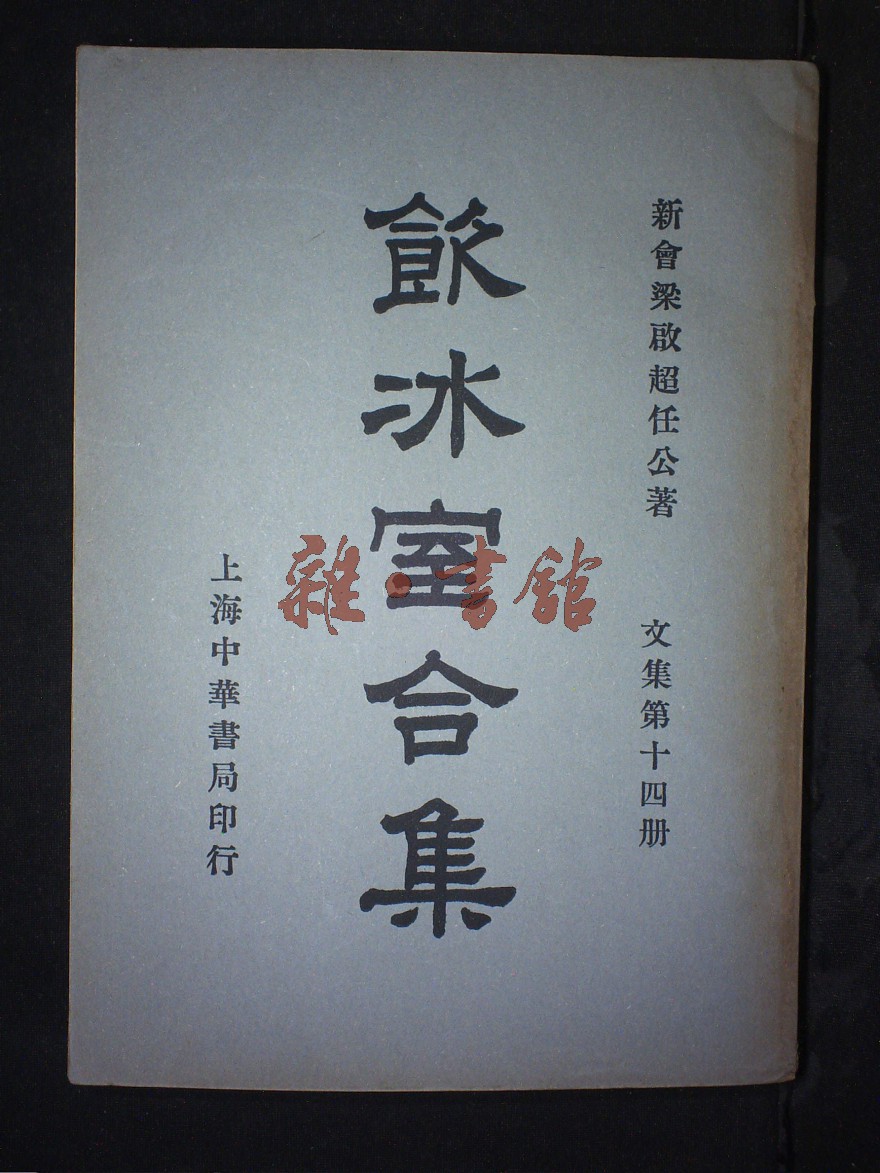 新會梁啟超任公著
文集第十四册
飲冰室合集
上海中華書局印行
雜·書館